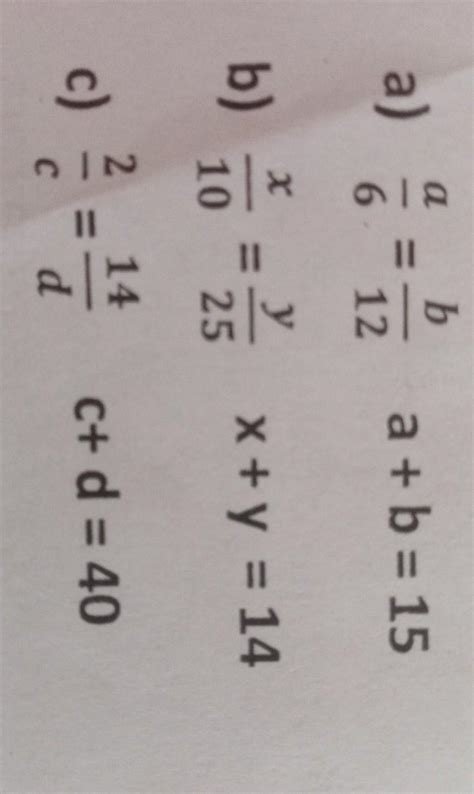 a) a/6 = b/12 a + b = 15
b) x/10 = y/25 x + y = 14
c) 2/c = 14/d c+ d = 40